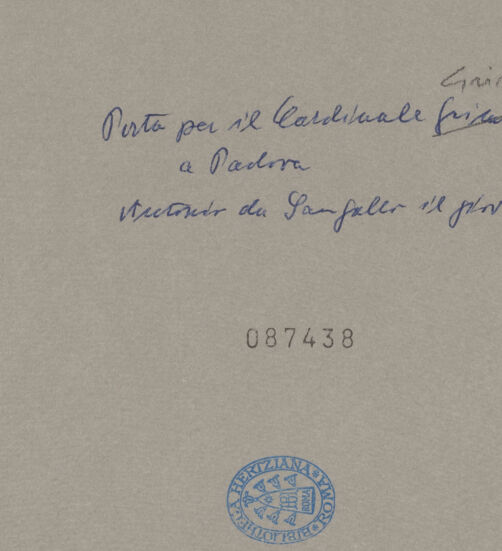 Grim
Porta per il Cardinale Grima
a Padova
Antonio da Sangallo il giov
087438
BIBLIOTHECA HERTZIANA ROMA
ROMA